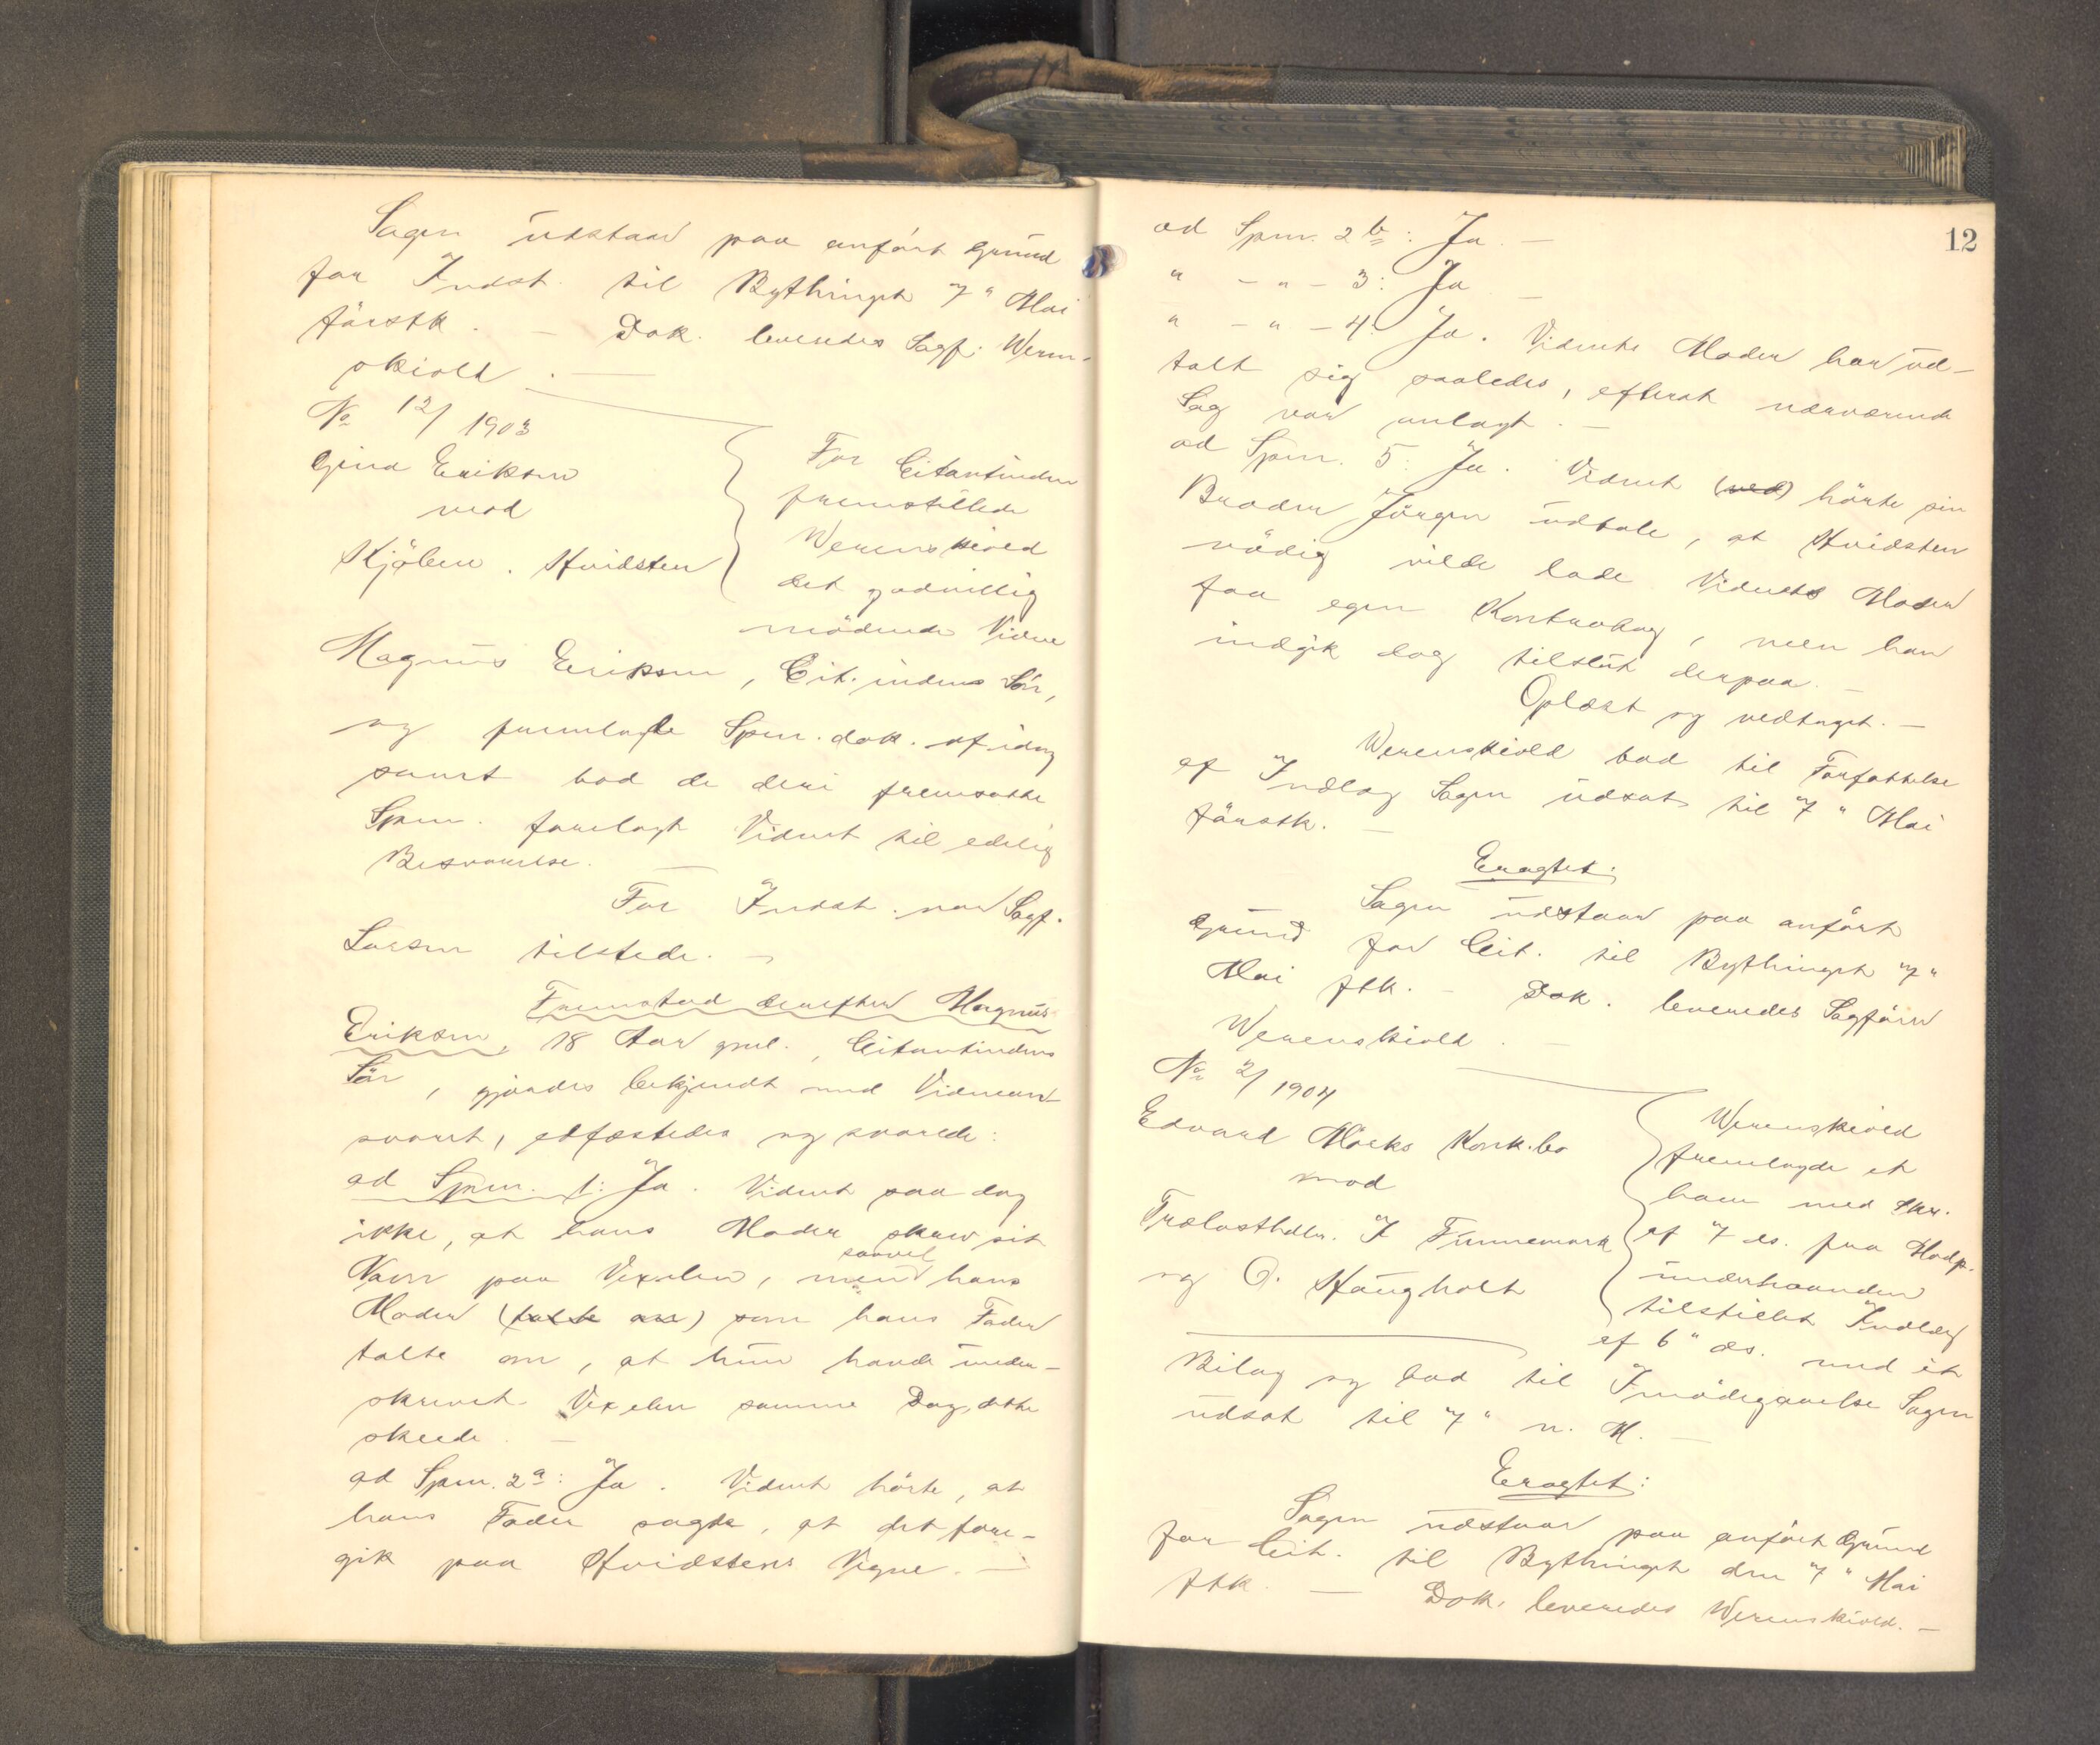 Sagen udstaar paa anført Grund
for Indst. til Bythinget 7" Mai
førstk. — Dok. leveredes Sagf. Weren-
skiold. —
No 12/1903
Gina Eriksen
mod
Kjøbm. Hvidsten
For Citantinden
fremstillede
Werenskiold
det godvillig
mødende Vidne
Magnus Eriksen, Cit.indens Søn,
og fremlagde Spm.dok. af idag
samt bad de deri fremsatte
Spm. forelagt Vidnet til edelig
Besvarelse. —
For Indst. var Sagf.
Larsen tilstede. —
Fremstod derefter Magnus
Eriksen, 18 Aar gml., Citantindens
Søn, gjordes bekjendt med Vidnean-
svaret, edfæstedes og svarede:
ad Spm. 1: Ja. Vidnet saa dog
ikke, at hans Moder skrev sit
Navn paa Vexelen, men saavel hans
Moder (talte om) som hans Fader
talte om, at hun havde under-
skrevet Vexelen samme Dag, dette
skede. —
ad Spm. 2a: Ja. Vidnet hørte, at
hans Fader sagde, at det fore-
gik paa Hvidstens Vegne. —
12
ad Spm. 2b: Ja. —
" — " — 3: Ja —
" — " — 4: Ja. Vidnets Moder har ud-
talt sig saaledes, efterat nærværende
Sag var anlagt. —
ad Spm. 5: Ja. Vidnet (ved) hørte sin
Broder Jørgen udtale, at Hvidsten
nødig vilde lade Vidnets Moder
faa egen Kontrabog, men han
indgik dog tilslut derpaa. —
Oplæst og vedtaget. —
Werenskiold bad til Forfattelse
af Indlæg Sagen udsat til 7" Mai
førstk. —
Eragtet:
Sagen udstaar paa anført
Grund for Cit. til Bythinget 7"
Mai fstk. — Dok. leveredes Sagfører
Werenskiold. —
No 2/1904
Edvard Moeks Konk.bo
mod
Trælasthdlr. J Funnemark
og O. Haugholt
Werenskiold
fremlagde et
ham med Skr.
af 7 ds. fra Modp.
underhaanden
tilstillet Indlæg
af 6" ds. med et
Bilag og bad til Imødegaaelse Sagen
udsat til 7" n. M. —
Eragtet:
Sagen udstaar paa anført Grund
for Cit. til Bythinget den 7" Mai
fstk. — Dok. leveredes Werenskiold. —